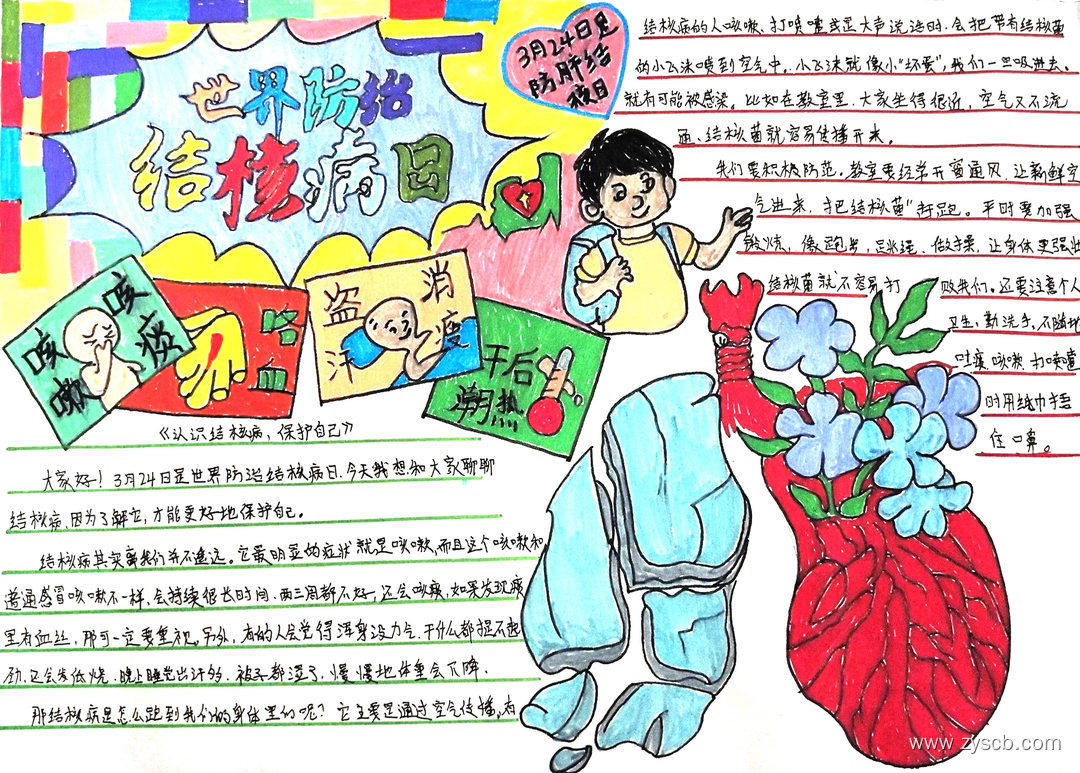 世界防治
结核病日
3月24日是
防肝结
核日
咳嗽
咳痰
咯血
盗汗
消瘦
干后
潮热
《认识结核病，保护自己》
大家好！3月24日是世界防治结核病日.今天我想和大家聊聊
结核病,因为了解它,才能更好地保护自己。
结核病其实离我们并不遥远。它最明显的症状就是咳嗽,而且这个咳嗽和
普通感冒咳嗽不一样,会持续很长时间,两三周都不好,还会咳痰,如果发现痰
里有血丝,那可一定要重视,另外,有的人会觉得浑身没力气,干什么都提不起
劲,还会发低烧.晚上睡觉出汗多.被子都湿了,慢慢地体重会下降.
那结核病是怎么跑到我们的身体里的呢？它主要是通过空气传播,有
结核病的人咳嗽、打喷嚏或是大声说话时.会把带有结核菌
的小飞沫喷到空气中,小飞沫就像小“坏蛋”,我们一旦吸进去.
就有可能被感染。比如在教室里.大家坐得很近,空气又不流
通、结核菌就容易传播开来。
我们要积极防范。教室要经常开窗通风.让新鲜空
气进来,把结核菌“赶跑。平时要加强
锻炼,像跑步,跳绳、做操,让身体更强壮
结核菌就不容易打败我们。还要注意个人
卫生,勤洗手,不随地
吐痰,咳嗽,打喷嚏
时用纸巾捂
住口鼻。
www.zyscb.com